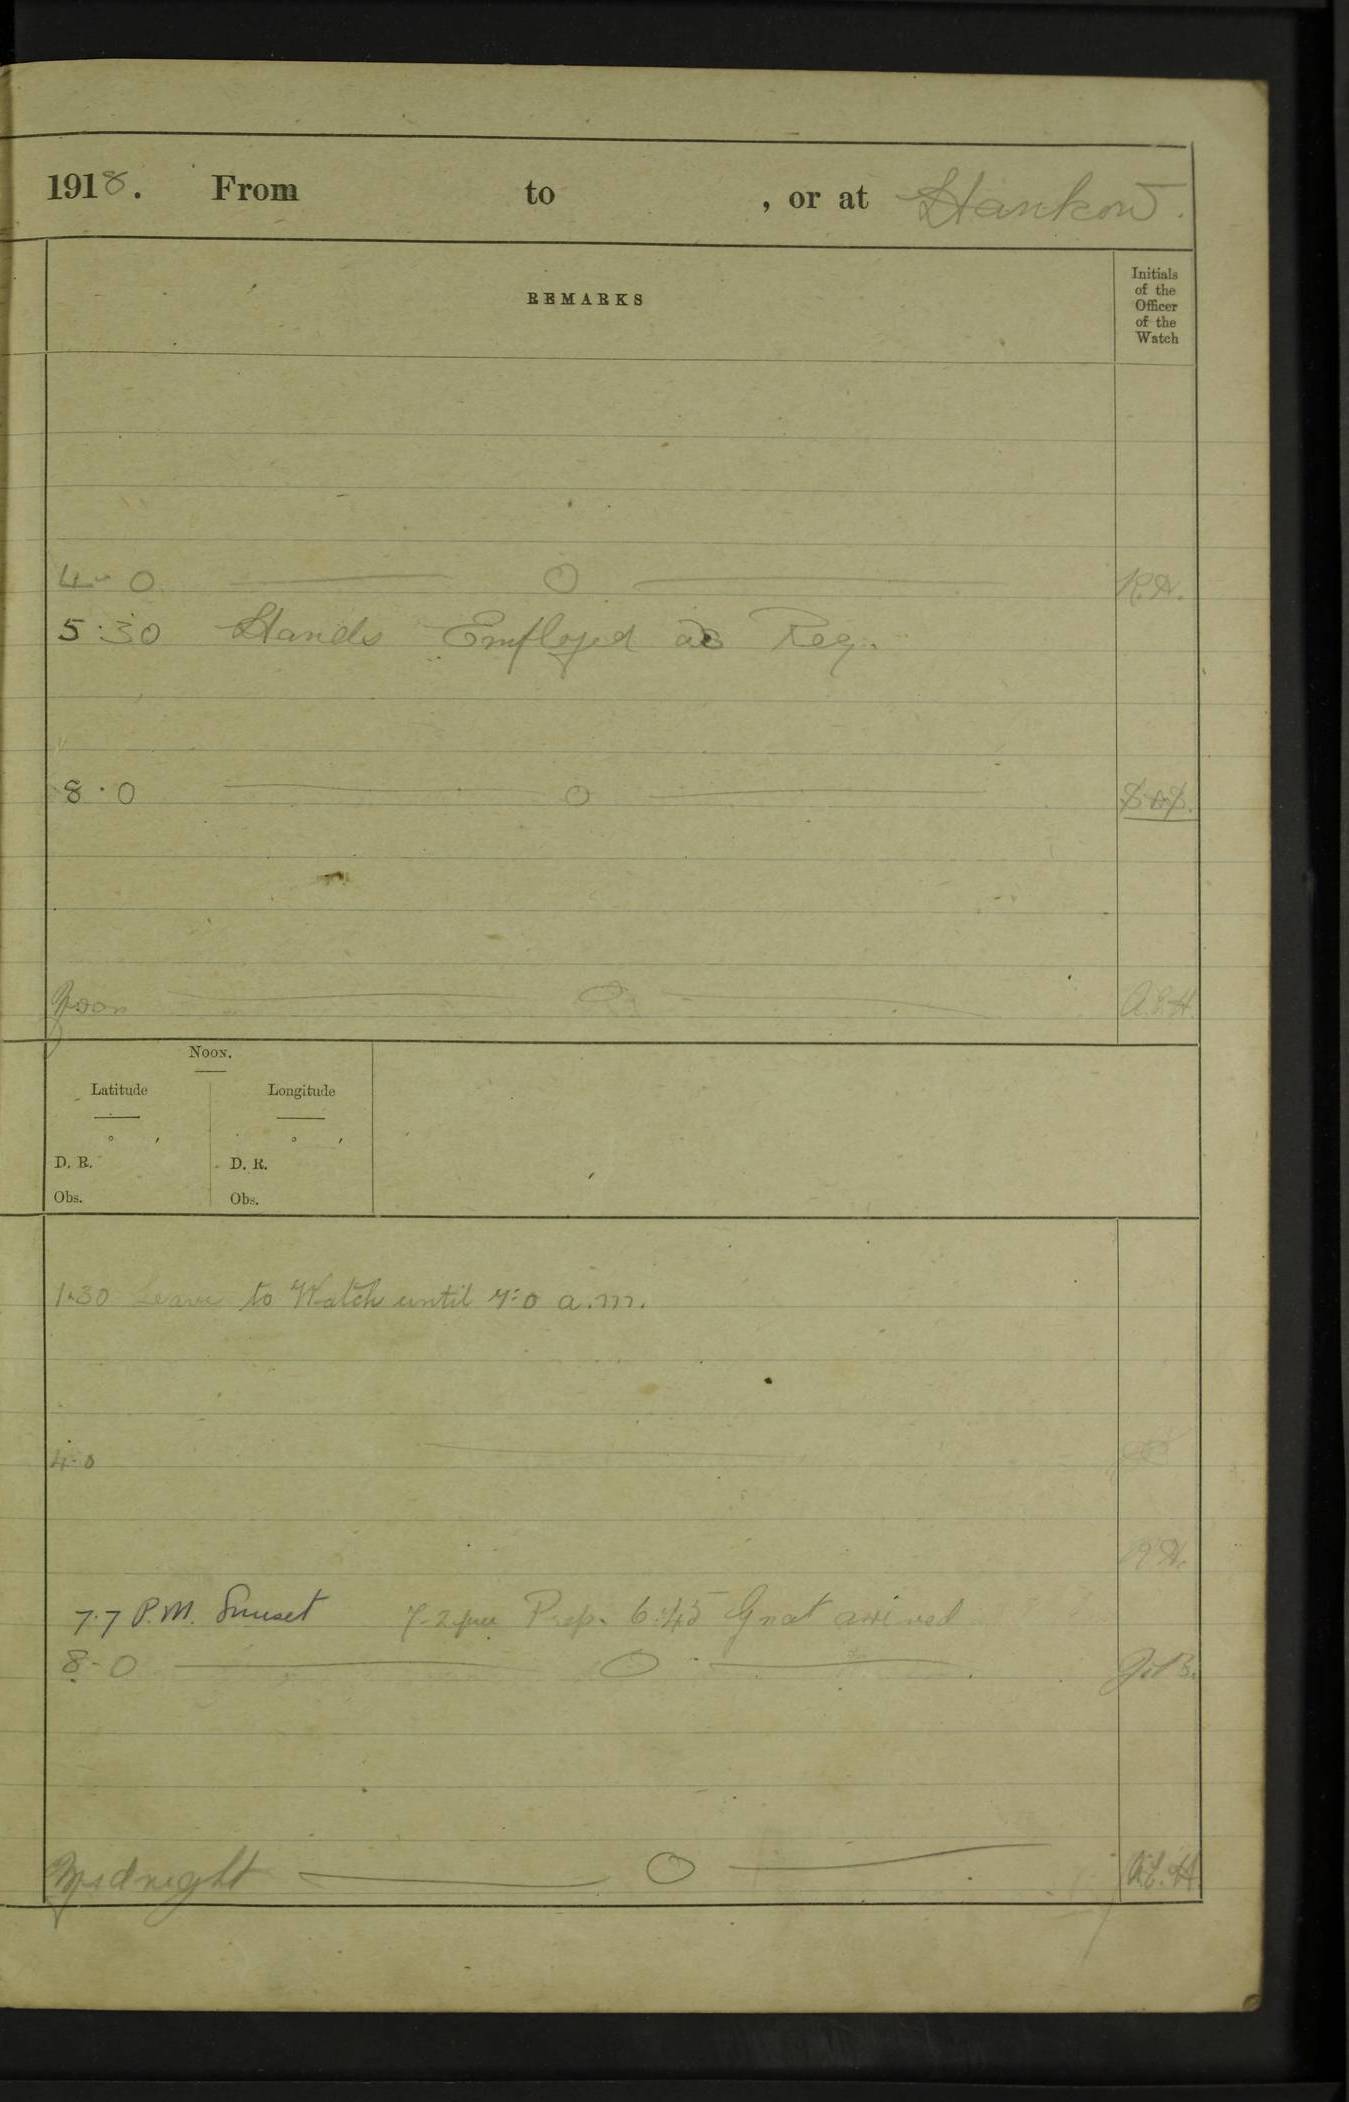 1918. From to , or at Hankow.
REMARKS
Initials
of the
Officer
of the
Watch
4-0 ——— O ——— R.H.
5.30 Hands Employed as Req.
8.0 ——— O ———
Noon ——— O ——— A.E.H.
NOON.
Latitude Longitude
° ′ ° ′
D. R. D. R.
Obs. Obs.
1.30 Leave to Watch until 7.0 a.m.
4.0
R.H.
7.7 P.M. Sunset 7-2 Prep. 6.45 Gnat arrived
8-0 ——— O ———
Midnight ——— O ——— A.E.H.